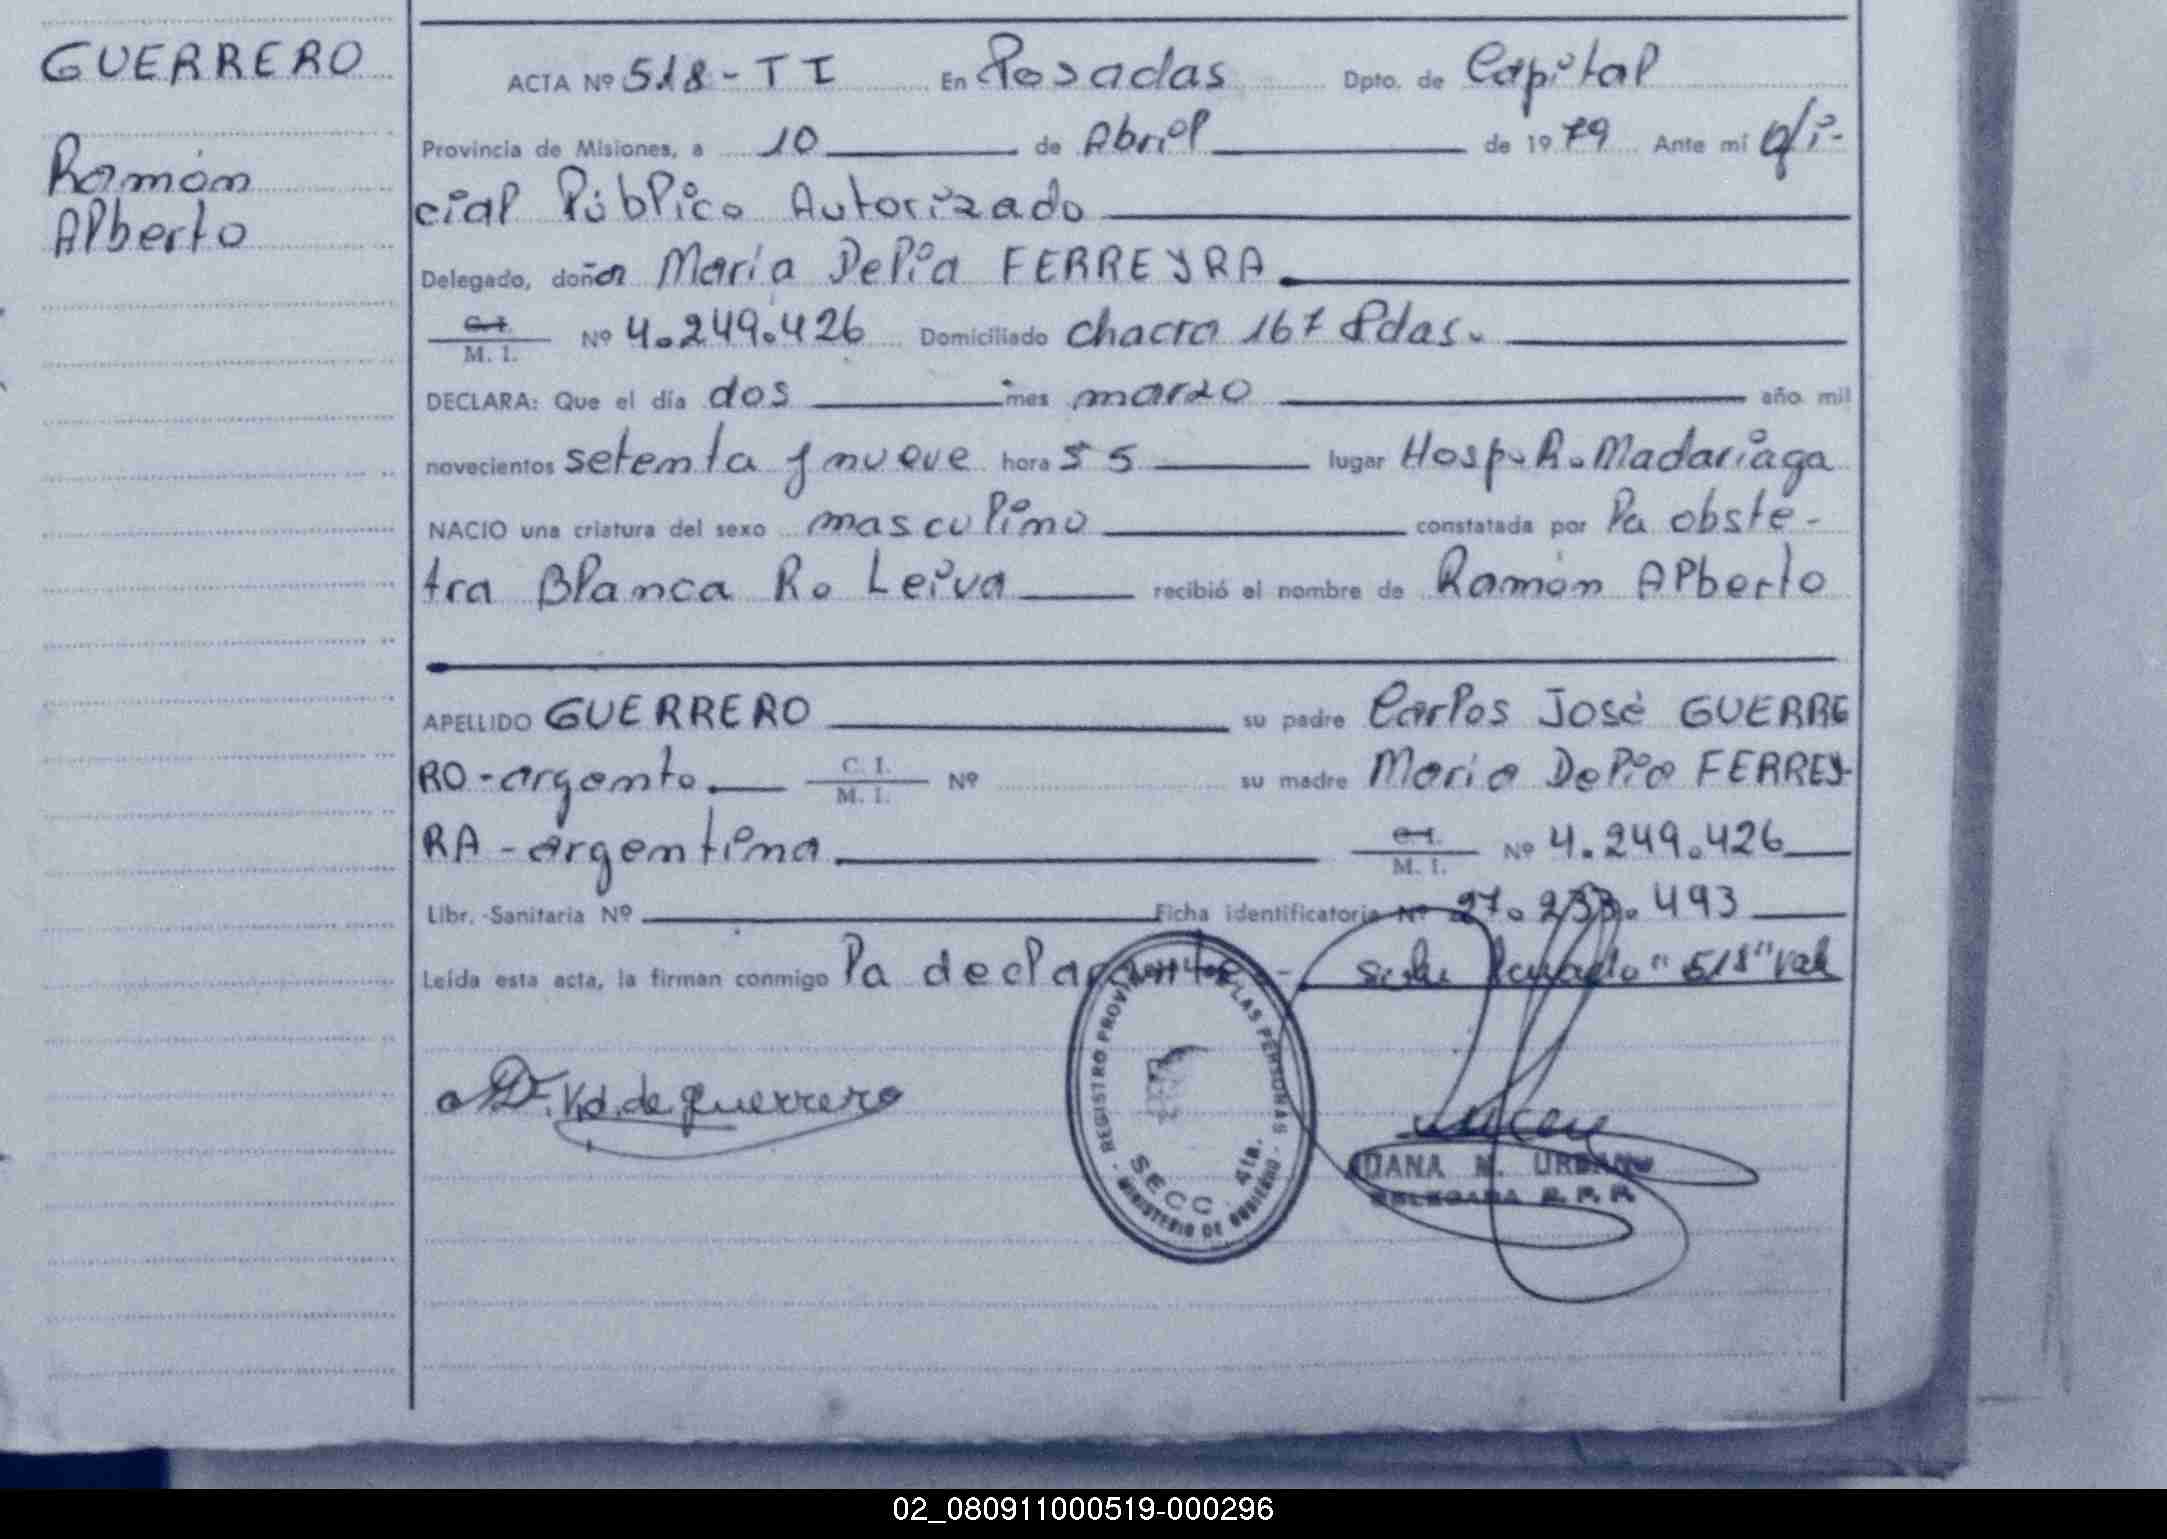 GUERRERO
Ramón
Alberto
ACTA Nº 518-TI En Posadas Dpto. de Capital
Provincia de Misiones, a 10 de Abril de 1979 Ante mí ofi-
cial Público Autorizado
Delegado, doña María Delia FERREYRA
C.I. M. I. Nº 4.249.426 Domiciliado chacra 167 Pdas.
DECLARA: Que el día dos mes marzo año mil
novecientos setenta y nueve hora 5 5 lugar Hosp. R. Madariaga
NACIO una criatura del sexo masculino constatada por la obste-
tra Blanca R. Leiva recibió el nombre de Ramón Alberto
APELLIDO GUERRERO su padre Carlos José GUERRE
RO-argento. C. I. M. I. Nº su madre María Delia FERREY-
RA-argentina C.I. M. I. Nº 4.249.426
Libr. Sanitaria Nº Ficha identificatoria Nº 27.233.493
Leída esta acta, la firman conmigo la declarante.- "518" Vale
Vd. de guerrero
REGISTRO PROVINCIAL DE LAS PERSONAS
SECC. 4ta.
MINISTERIO DE GOBIERNO
JUANA N. URBANO
DELEGADA R. P. P.
02_080911000519-000296